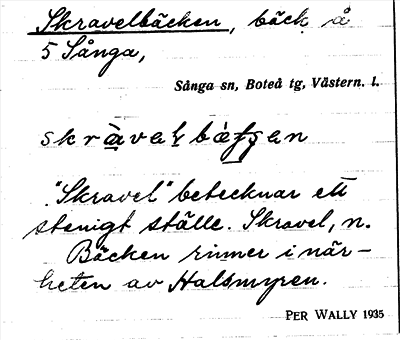 Skravelbäcken, bäck å
5 Sånga,
Sånga sn, Boteå tg, Västern. l.
"Skravel" betecknar ett
stenigt ställe. Skravel, n.
Bäcken rinner i när-
heten av Halsmyren.
PER WALLY 1935